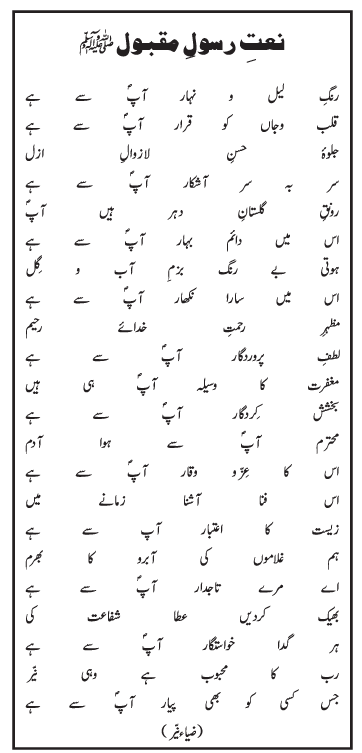 نعتِ رسولِ مقبول ﷺ
رنگِ لیل و نہار آپؐ سے ہے
قلب وجاں کو قرار آپؐ سے ہے
جلوۂ حسنِ لازوالِ ازل
سر بہ سر آشکار آپؐ سے ہے
رونقِ گلستانِ دہر ہیں آپؐ
اس میں دائم بہار آپؐ سے ہے
ہوتی بے رنگ بزمِ آب و گِل
اس میں سارا نکھار آپؐ سے ہے
مظہرِ رحمتِ خدائے رحیم
لطفِ پروردگار آپؐ سے ہے
مغفرت کا وسیلہ آپؐ ہی ہیں
بخششِ کردگار آپؐ سے ہے
محترم آپؐ سے ہوا آدم
اس کا عِزّ و وقار آپؐ سے ہے
اس فنا آشنا زمانے میں
زیست کا اعتبار آپ سے ہے
ہم غلاموں کی آبرو کا بھرم
اے مرے تاجدار آپؐ سے ہے
بھیک کردیں عطا شفاعت کی
ہر گدا خواستگار آپؐ سے ہے
رب کا محبوب ہے وہی نیّر
جس کسی کو بھی پیار آپؐ سے ہے
(ضیاء نیّر)